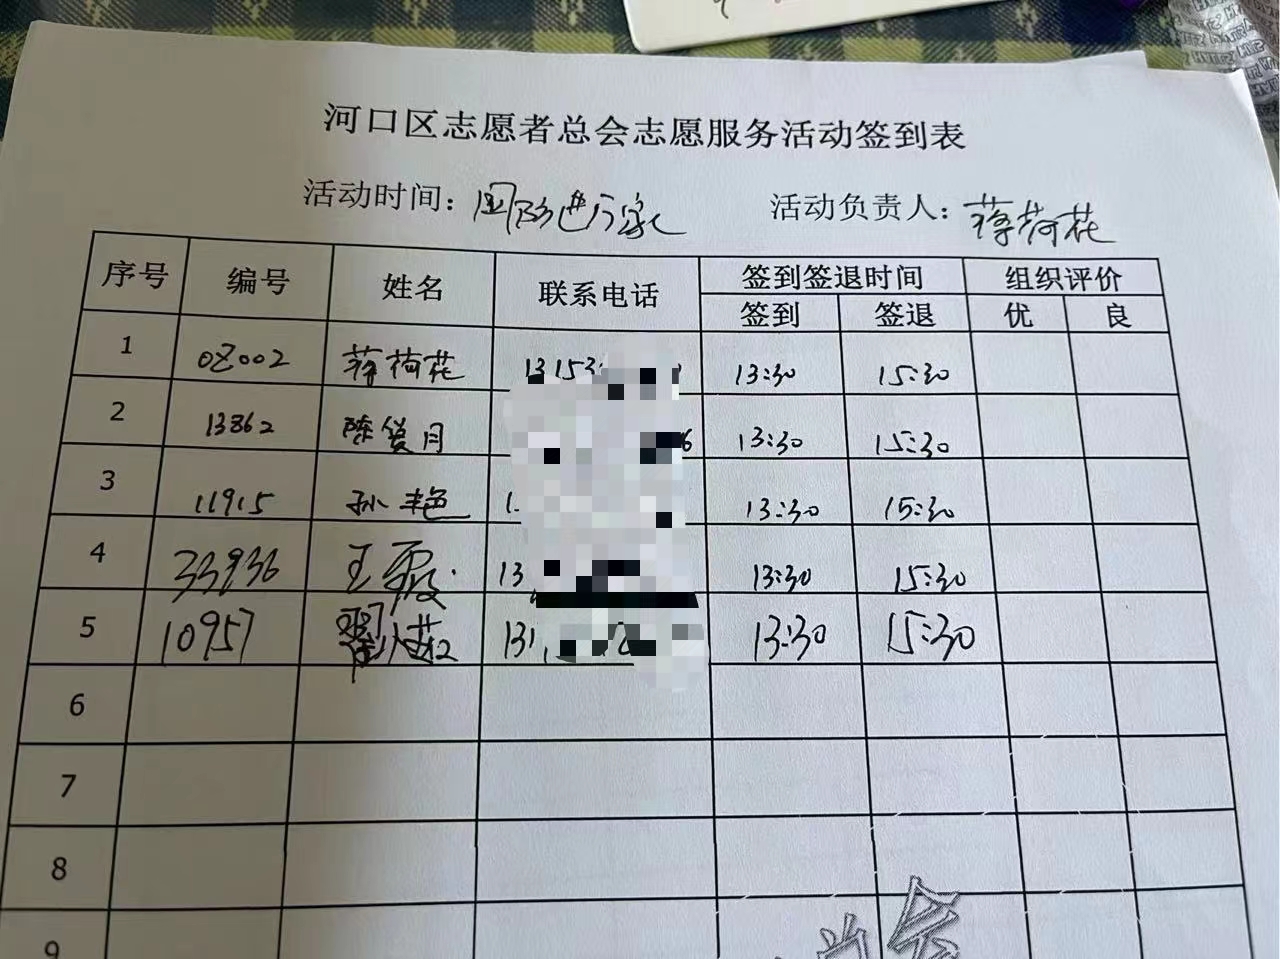 河口区志愿者总会志愿服务活动签到表
活动时间：国防进万家 活动负责人：蒋荷花
序号 编号 姓名 联系电话 签到签退时间 组织评价
签到 签退 优 良
1 02002 蒋荷花 13153 13:30 15:30
2 13862 陈 月 6 13:30 15:30
3 11915 孙艳 1 13:30 15:30
4 33936 王霞 13 13:30 15:30
5 10957 131 13:30 15:30
6
7
8
9
总会